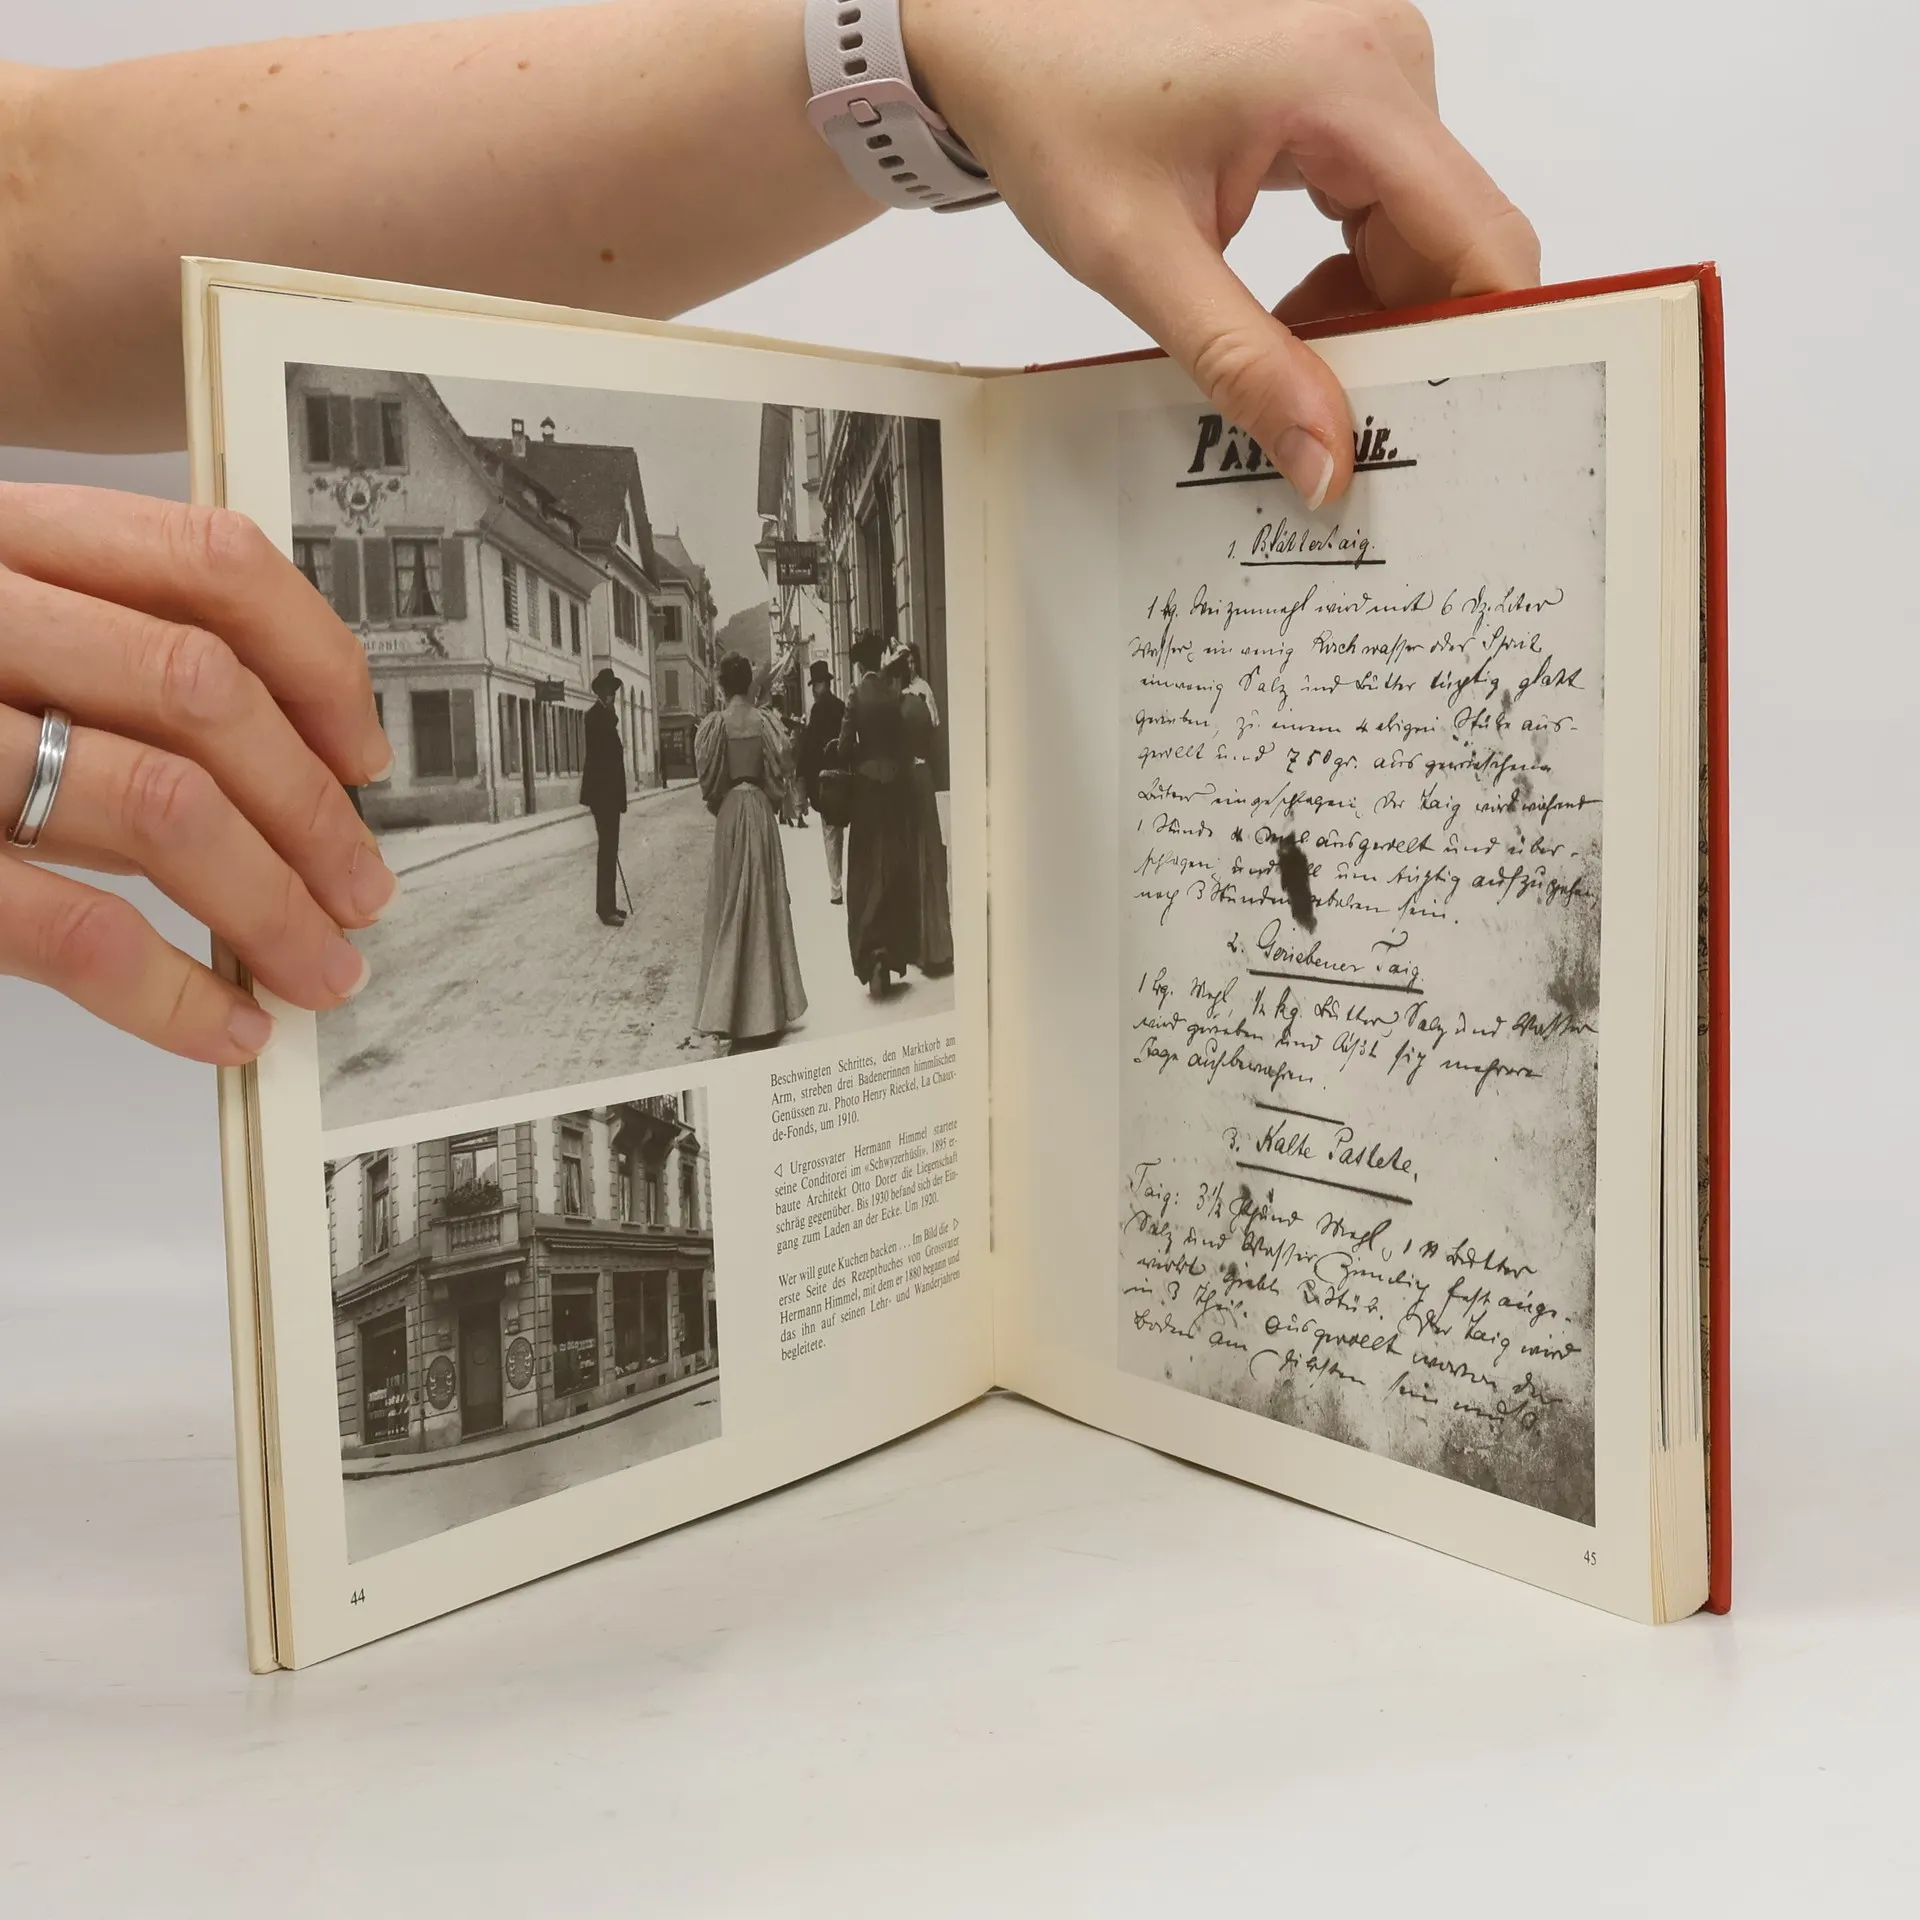 H. Himmel
Beschwingten Schrittes, den Marktkorb am
Arm, streben drei Badenerinnen himmlischen
Genüssen zu. Photo Henry Rieckel, La Chaux-
de-Fonds, um 1910.
◁ Urgrossvater Hermann Himmel startete
seine Conditorei im «Schwyzerhüsli». 1895 er-
baute Architekt Otto Dorer die Liegenschaft
schräg gegenüber. Bis 1930 befand sich der Ein-
gang zum Laden an der Ecke. Um 1920.
Wer will gute Kuchen backen . . . Im Bild die ▷
erste Seite des Rezeptbuches von Grossvater
Hermann Himmel, mit dem er 1880 begann und
das ihn auf seinen Lehr- und Wanderjahren
begleitete.
44
1. Blättertaig.
1 kg. Weizenmehl wird mit 6 Dz. Liter
Wasser, ein wenig Kirschwasser oder Sprit
ein wenig Salz und Butter tüchtig glatt
gerieben, zu einem 4 ekigen Stük aus-
gewellt und 750 gr. ausgewaschene
Butter eingeschlagen, der Taig wird während
1 Stunde 4 Mal ausgewellt und über-
schlagen, und um tüchtig aufzugehen,
noch 3 Stunden gebaken sein.
2. Geriebener Taig.
1 kg. Mehl, ½ kg. Butter, Salz und Wasser
wird gerieben und läßt sich mehrere
Tage aufbewahren.
3. Kalte Pastete.
Taig: 3½ Pfund Mehl, 1 Butter
Salz und Wasser (ziemlich fest ange-
wirkt giebt 2 Stük. Der Taig wird
in 3 Theil. ausgewellt wovon der
Boden am dicksten sein muß.
45